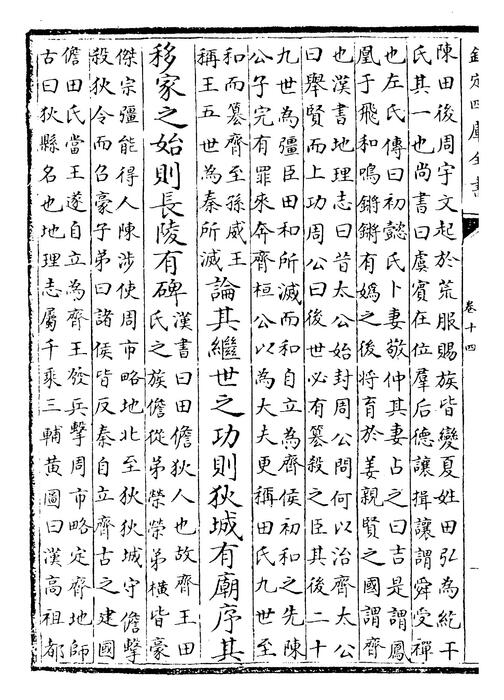 欽定四庫全書
卷十四
陳田後周宇文起於荒服賜族皆變夏姓田弘為紇干
氏其一也尚書曰虞賓在位羣后德讓揖讓謂舜受禪
也左氏傳曰初懿氏卜妻敬仲其妻占之曰吉是謂鳳
凰于飛和鳴鏘鏘有媯之後將育於姜親賢之國謂齊
也漢書地理志曰昔太公始封周公問何以治齊太公
曰舉賢而上功周公曰後世必有篡殺之臣其後二十
九世為彊臣田和所滅而和自立為齊侯初和之先陳
公子完有罪來奔齊桓公以為大夫更稱田氏九世至
和而篡齊至孫威王
稱王五世為秦所滅
論其繼世之功則狄城有廟序其
移家之始則長陵有碑
漢書曰田儋狄人也故齊王田
氏之族儋從弟榮榮弟橫皆豪
傑宗彊能得人陳涉使周市略地北至狄狄城守儋擊
殺狄令而召豪子弟曰諸侯皆反秦自立齊古之建國
儋田氏當王遂自立為齊王發兵擊周市略定齊地師
古曰狄縣名也地理志屬千乘三輔黃圖曰漢高祖都